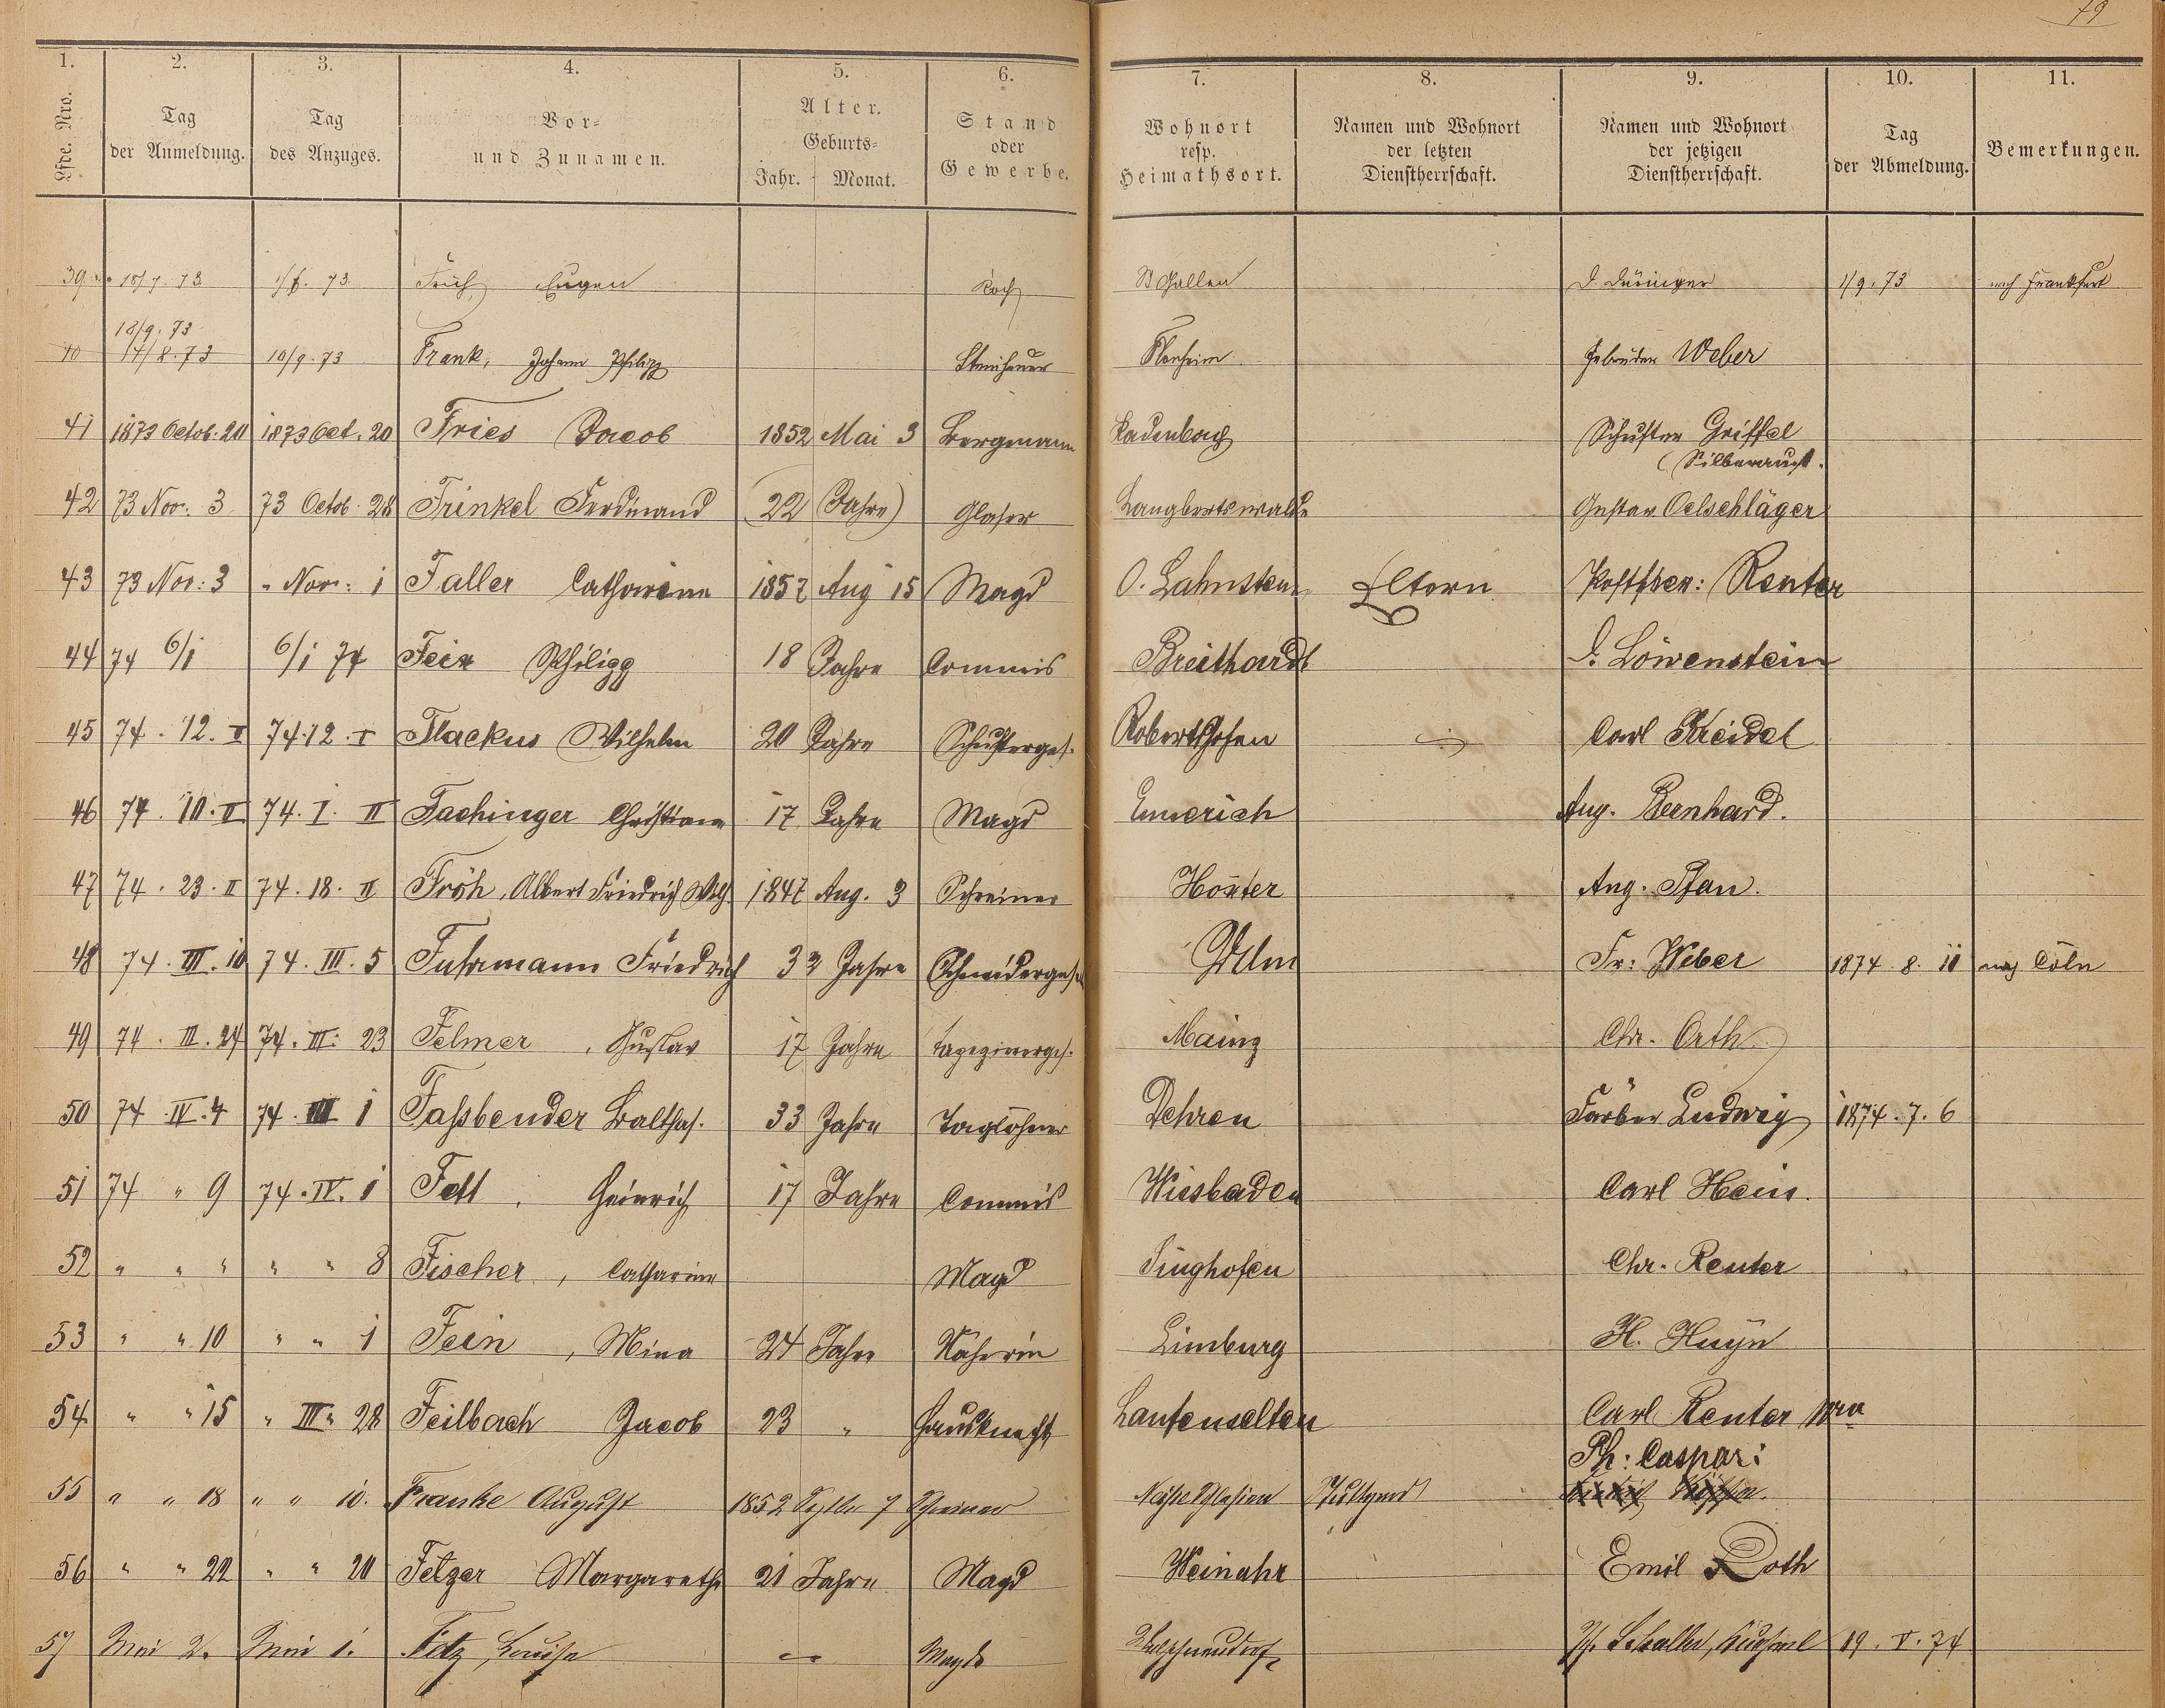 79
1. 2. 3. 4. 5. 6. 7. 8. 9. 10. 11.
Lfde. Nro. Tag der Anmeldung. Tag des Anzuges. Vor- und Zunamen. Alter. Geburts- Jahr. Monat. Stand oder Gewerbe. Wohnort resp. Heimathsort. Namen und Wohnort der letzten Dienstherrschaft. Namen und Wohnort der jetzigen Dienstherrschaft. Tag der Abmeldung. Bemerkungen.
39 18/7. 73 Eugen Koch St Gallen 1/9. 73 nach Frankfurt
18/9. 73
40 14/8. 73 10/9. 73 Frank, Johann Philipp Steinhauer Flonheim Gebrüder Weber
41 1873 Octob. 20 1873 Oct. 20 Fries Jacob 1852 Mai 3 Bergmann Kadenbach Schuster Griffel
42 73 Nov. 3 73 Octob. 28 Frinkel Ferdinand (22 Jahre) Glaser Langbertswalde Gustav Oelschläger
43 73 Nov: 3 " Nov: 1 Faller Catharina 1857 Aug 15 Magd O. Lahnstein Eltern Reuter
44 74 6/1 6/1 74 Fein Philipp 18 Jahre Commis Breithardt J. Löwenstein
45 74. 12. I 74. 12. I Flackus Wilhelm 20 Jahre Schusterges. Robertshofen Carl Kreidel
46 74. 10. II 74. 1. II Fachinger Christiane 17 Jahre Magd Emmerich Aug. Bernhard.
47 74. 23. II 74. 18. II Fröh, Albert Friedrich Wilh. 1847 Aug. 3 Schreiner Höxter Aug. Pfau.
48 74. III. 10 74. III. 5 Fuhrmann Friedrich 32 Jahre Schneidergesel Fr: Weber 1874. 8. 11 nach Cöln
49 74. III. 24 74. III. 23 Felmer, Gustav 17 Jahre Tapezirerges. Mainz Chr. Orth
50 74. IV. 4 74. III 1 Faßbender Balthas. 33 Jahre Taglöhner Dehren Färber Ludwig 1874. 7. 6
51 74 " 9 74. IV. 1 Fett, Heinrich 17 Jahre Commis Wiesbaden Carl Heis.
52 " " " " " 8 Fischer, Catharina Magd Singhofen Chr. Reuter
53 " " 10 " " 1 Fein, Mina 24 Jahre Näherin Limburg H. Huyn
54 " " 15 " III " 28 Feilbach Jacob 23 " Hausknecht Laufenselten Carl Reuter Wwe
Ph: Caspari
55 " " 18 " " 10. Franke August 1852 Septbr 7 Schreiner Stuttgard
56 " " 22 " " 20 Fetzer Margaretha 21 Jahre Magd Weinahr Emil Roth
57 Mai 2. Mai 1. Fetz, Louise Magd 19. V. 74